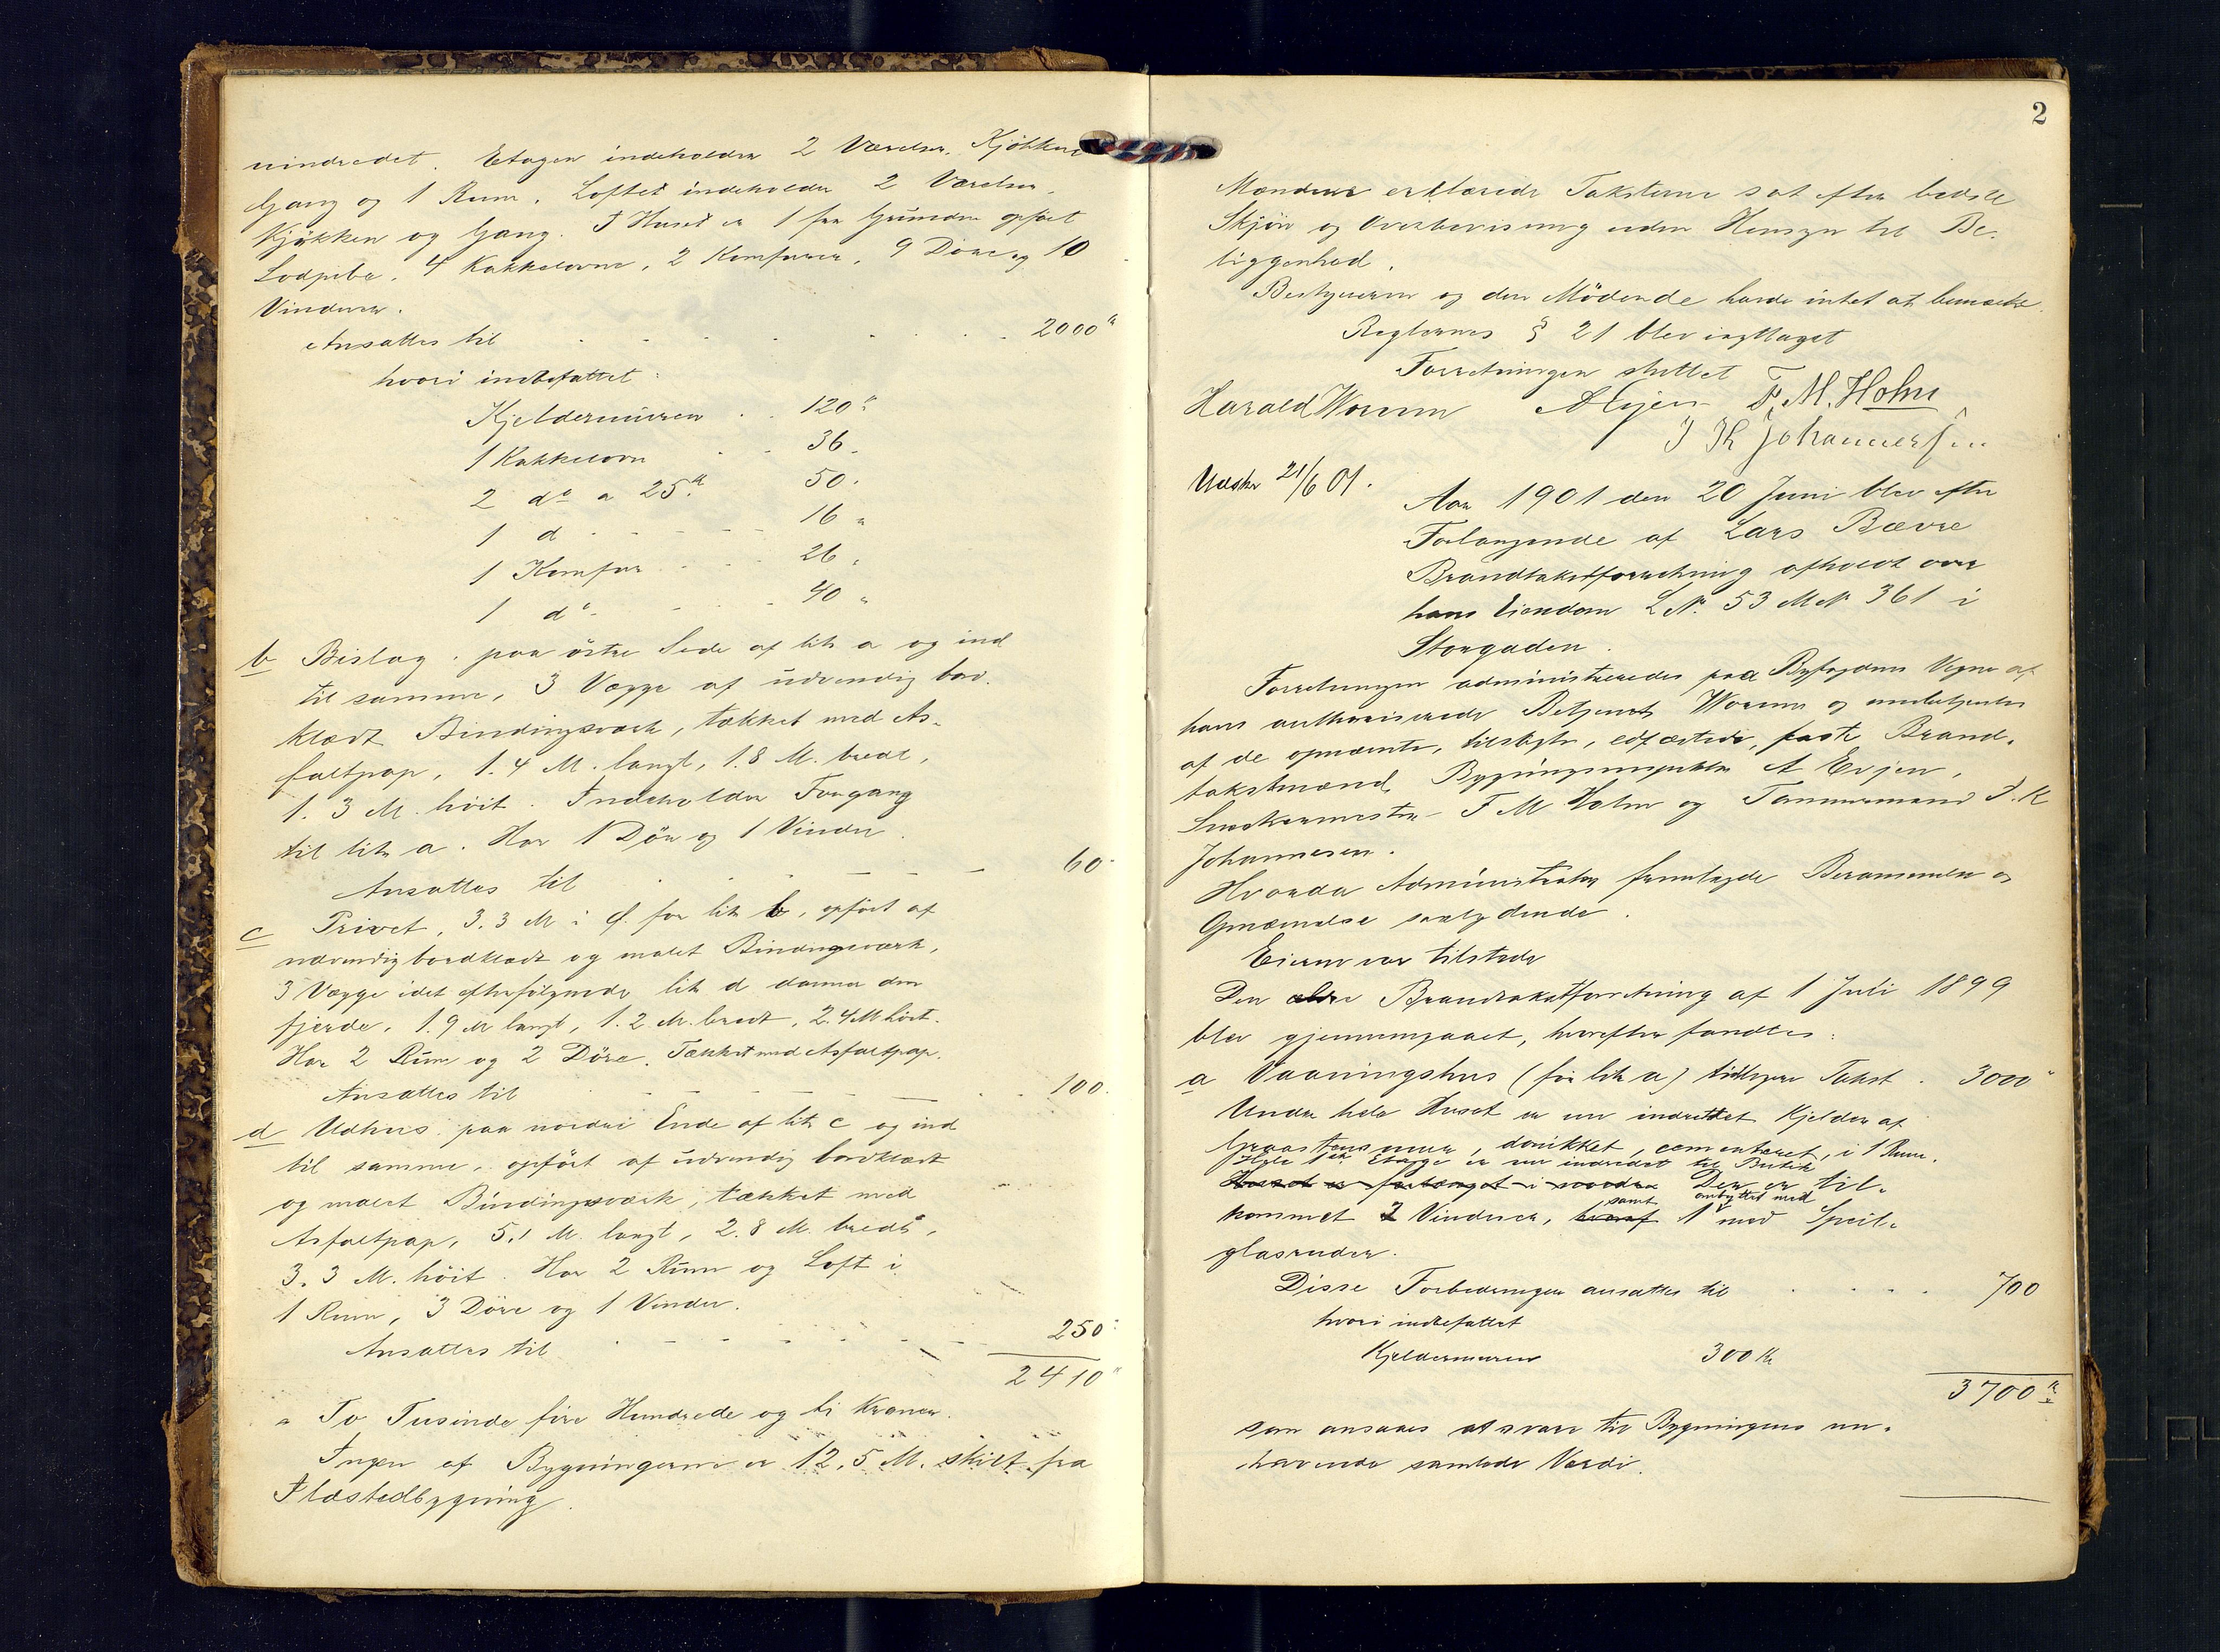 uindredet. Etagen indeholder 2 Værelser, Kjøkken
Gang og 1 Rum. Loftet indeholder 2 Værelser,
Kjøkken og Gang. I Huset er 1 fra Grunden opført
Lodpibe, 4 Kakkelovne, 2 Komfurer, 9 Døre og 10
Vinduer.
Ansattes til 2000 Kr
hvori indbefattet:
Kjeldermuren 120 "
1 Kakkelovn 36 "
2 do a 25 Kr 50 "
1 d 16 "
1 Komfur 26 "
1 do 40 "
b Bislag paa östre Side af litr a og ind
til samme, 3 Vægge af udvendig bord-
klædt Bindingsværk, tækket med As-
faltpap, 1.4 M. langt, 1.8 M. bredt,
1.3 M. höit. Indeholder Forgang
til litr a. Har 1 Dör og 1 Vindu
Ansattes til 60 "
c Privet, 3.3 M i Ø. for litr b, opfört af
udvendig bordklædt og malet Bindingsværk,
3 Vægge idet efterfølgende litr d danner den
fjerde. 1.9 M langt, 1.2 M. bredt, 2.4 M höit.
Har 2 Rum og 2 Döre. Tækket med Asfaltpap.
Ansattes til 100.
d Udhus paa nordre Ende af litr c og ind
til samme, opfört af udvendig bordklædt
og malet Bindingsværk, tækket med
Asfaltpap, 5.1 M. langt, 2.8 M. bredt,
3.3 M. höit. Har 2 Rum og Loft i
1 Rum, 3 Döre og 1 Vindu.
Ansattes til 250 "
2410 "
= To Tusinde fire Hundrede og ti Kroner.
Ingen af Bygningerne er 12.5 M. skilt fra
Ildstedbygning.
2
Mændene erklærede Taksterne sat efter bedste
Skjön og Overbevisning uden Hensyn til Be-
liggenhed.
Bestyreren og den Mödende havde intet at bemærke.
Reglernes § 21 blev iagttaget
Forretningen sluttet
Harald Worum A Evjen F. M. Holm
J K Johannessen
Udskr 21/6 01.
Aar 1901 den 20 Juni blev efter
Forlangende af Lars Bævre
Brandtakstforretning afholdt over
hans Eiendom L N. 53 M N 361 i
Storgaden.
Forretningen administreredes paa Byfogdens Vegne af
hans authoriserede Betjent Worum og
af de opnævnte, tilsagte, edfæstede, faste Brand-
takstmænd, Bygningsinspektør A Evjen,
Snedkermester F M Holm og Tømmermand J. K
Johannesen.
Hvorda Administrator fremlagde Berammelse og
Opnævnelse saalydende.
Eieren var tilstede
Den ældre Brandtakstforretning af 1 Juli 1899
blev gjennemgaaet, hvorefter fandtes:
a Vaaningshus (för litr a) tidligere Takst 3000 "
Under hele Huset er nu indrettet Kjelder af
Graastensmur, dænkket, cementeret, i 1 Rum.
Hele 1ste Etage er nu indredet til Butik
Huset er forlænget i nordre Der er til-
samt ombyttet med
kommet 2 Vinduer, hvoraf 1 med Speil-
glasruder.
Disse Forbedringer ansattes til 700
hvori indbefattet
Kjeldermuren 300 Kr
3700 Kr
som ansaaes at svare til Bygningens nu-
havende samlede Værdi.